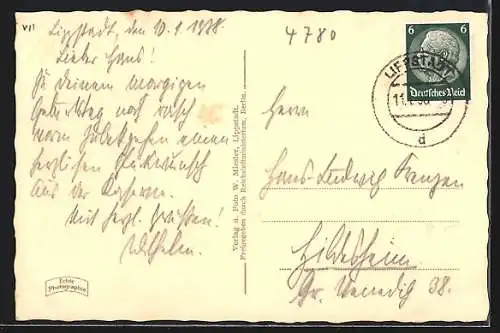 VII
Lippstadt, den 10.1.1938
Lieber Hans!
Zu Deinem morgigen
Geburtstag noch rasch
vorm Zubettgehen einen
herzlichen Glückwunsch
aus der Kaserne.
Mit herzl. Grüßen!
Wilhelm.
Echte
Photographie
Verlag u. Foto W. Minster, Lippstadt.
Freigegeben durch Reichsluftministerium, Berlin.
4780
6 6
Deutsches Reich
LIPPSTADT
d
Herrn
Hans-Ludwig Franzen
Hildesheim
Gr. Venedig 38.